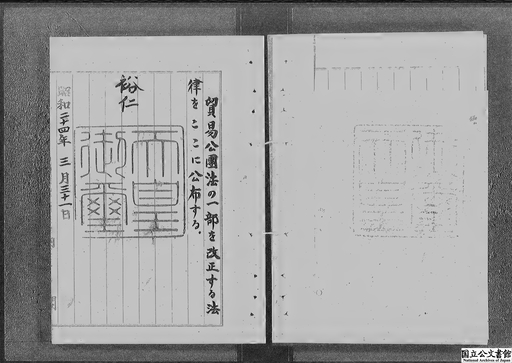 貿易公團法の一部を改正する法
律をここに公布する。
裕仁
天皇
御璽
昭和二十四年三月三十一日
国立公文書館
National Archives of Japan